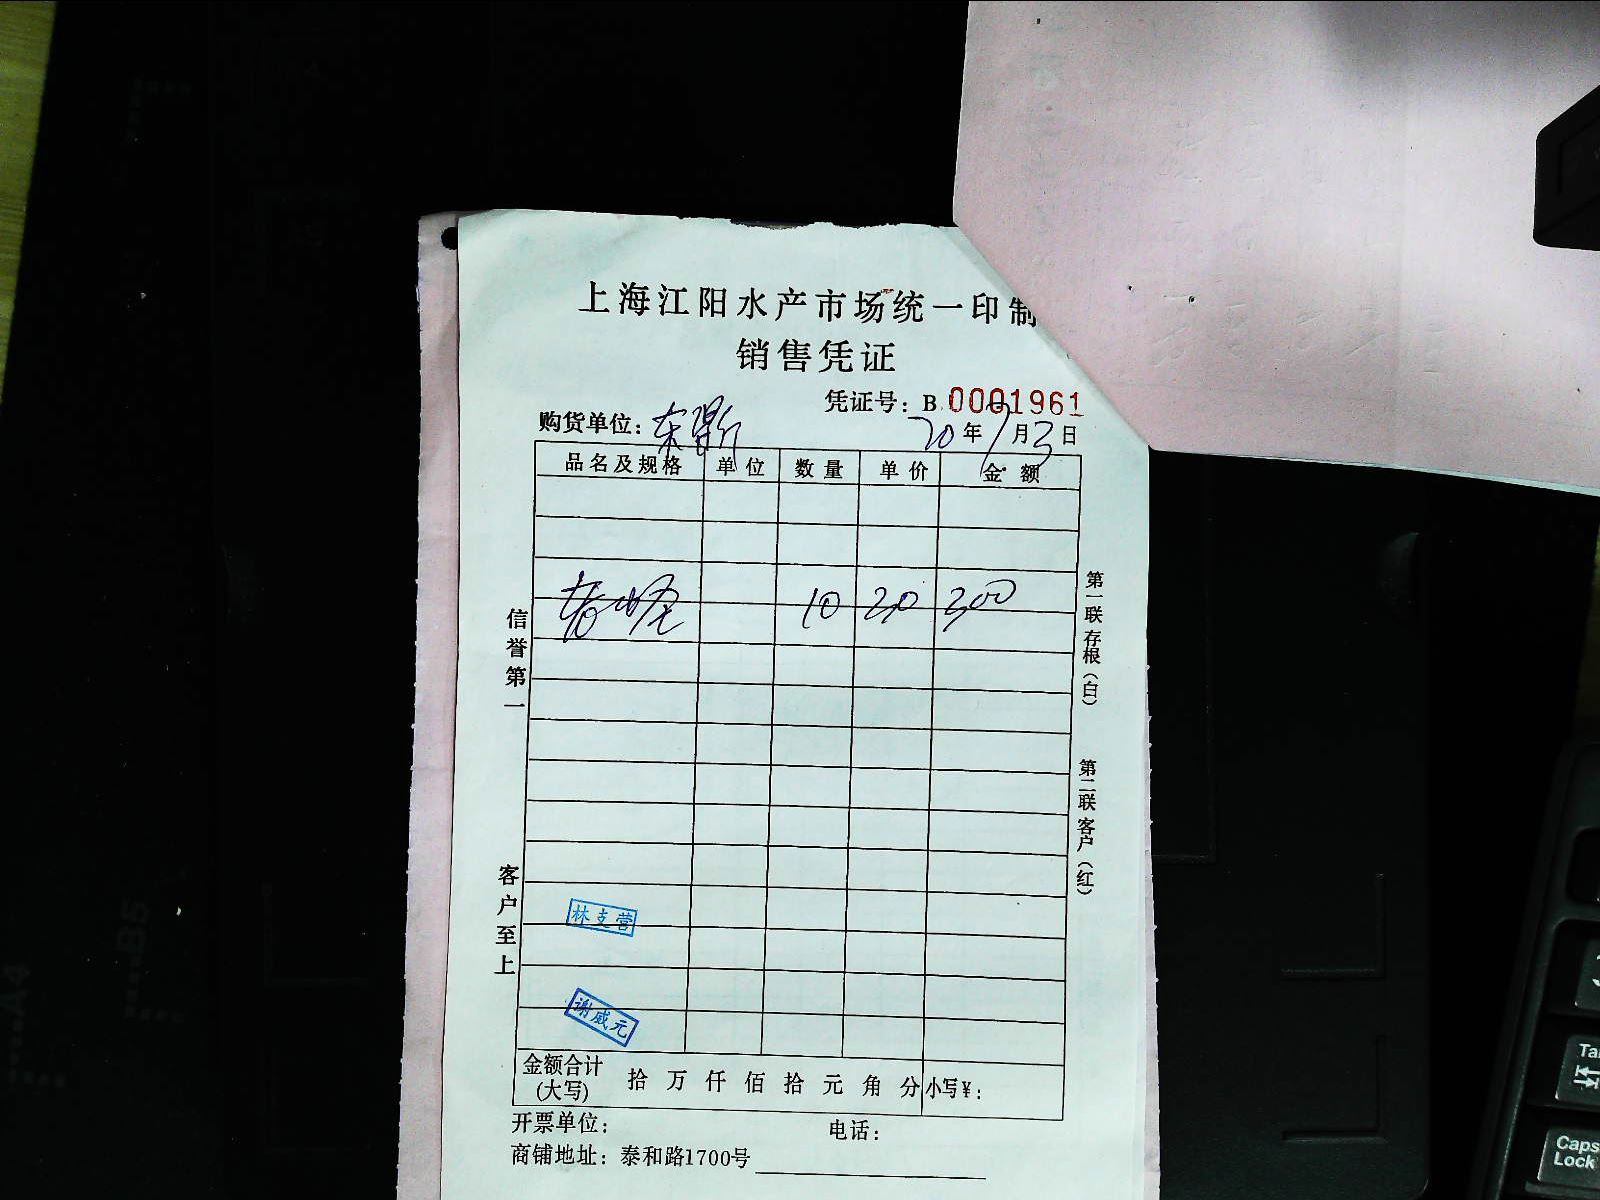 上海江阳水产市场统一印制
销售凭证
凭证号：B 0001961
购货单位：东鼎 20年7月3日
品名及规格 单位 数量 单价 金额
10 30 300
信誉第一
客户至上
第一联存根（白）
第二联客户（红）
林支营
谢威元
金额合计（大写） 拾万仟佰拾元角分 小写¥：
开票单位： 电话：
商铺地址：泰和路1700号
A4
B5
Caps Lock